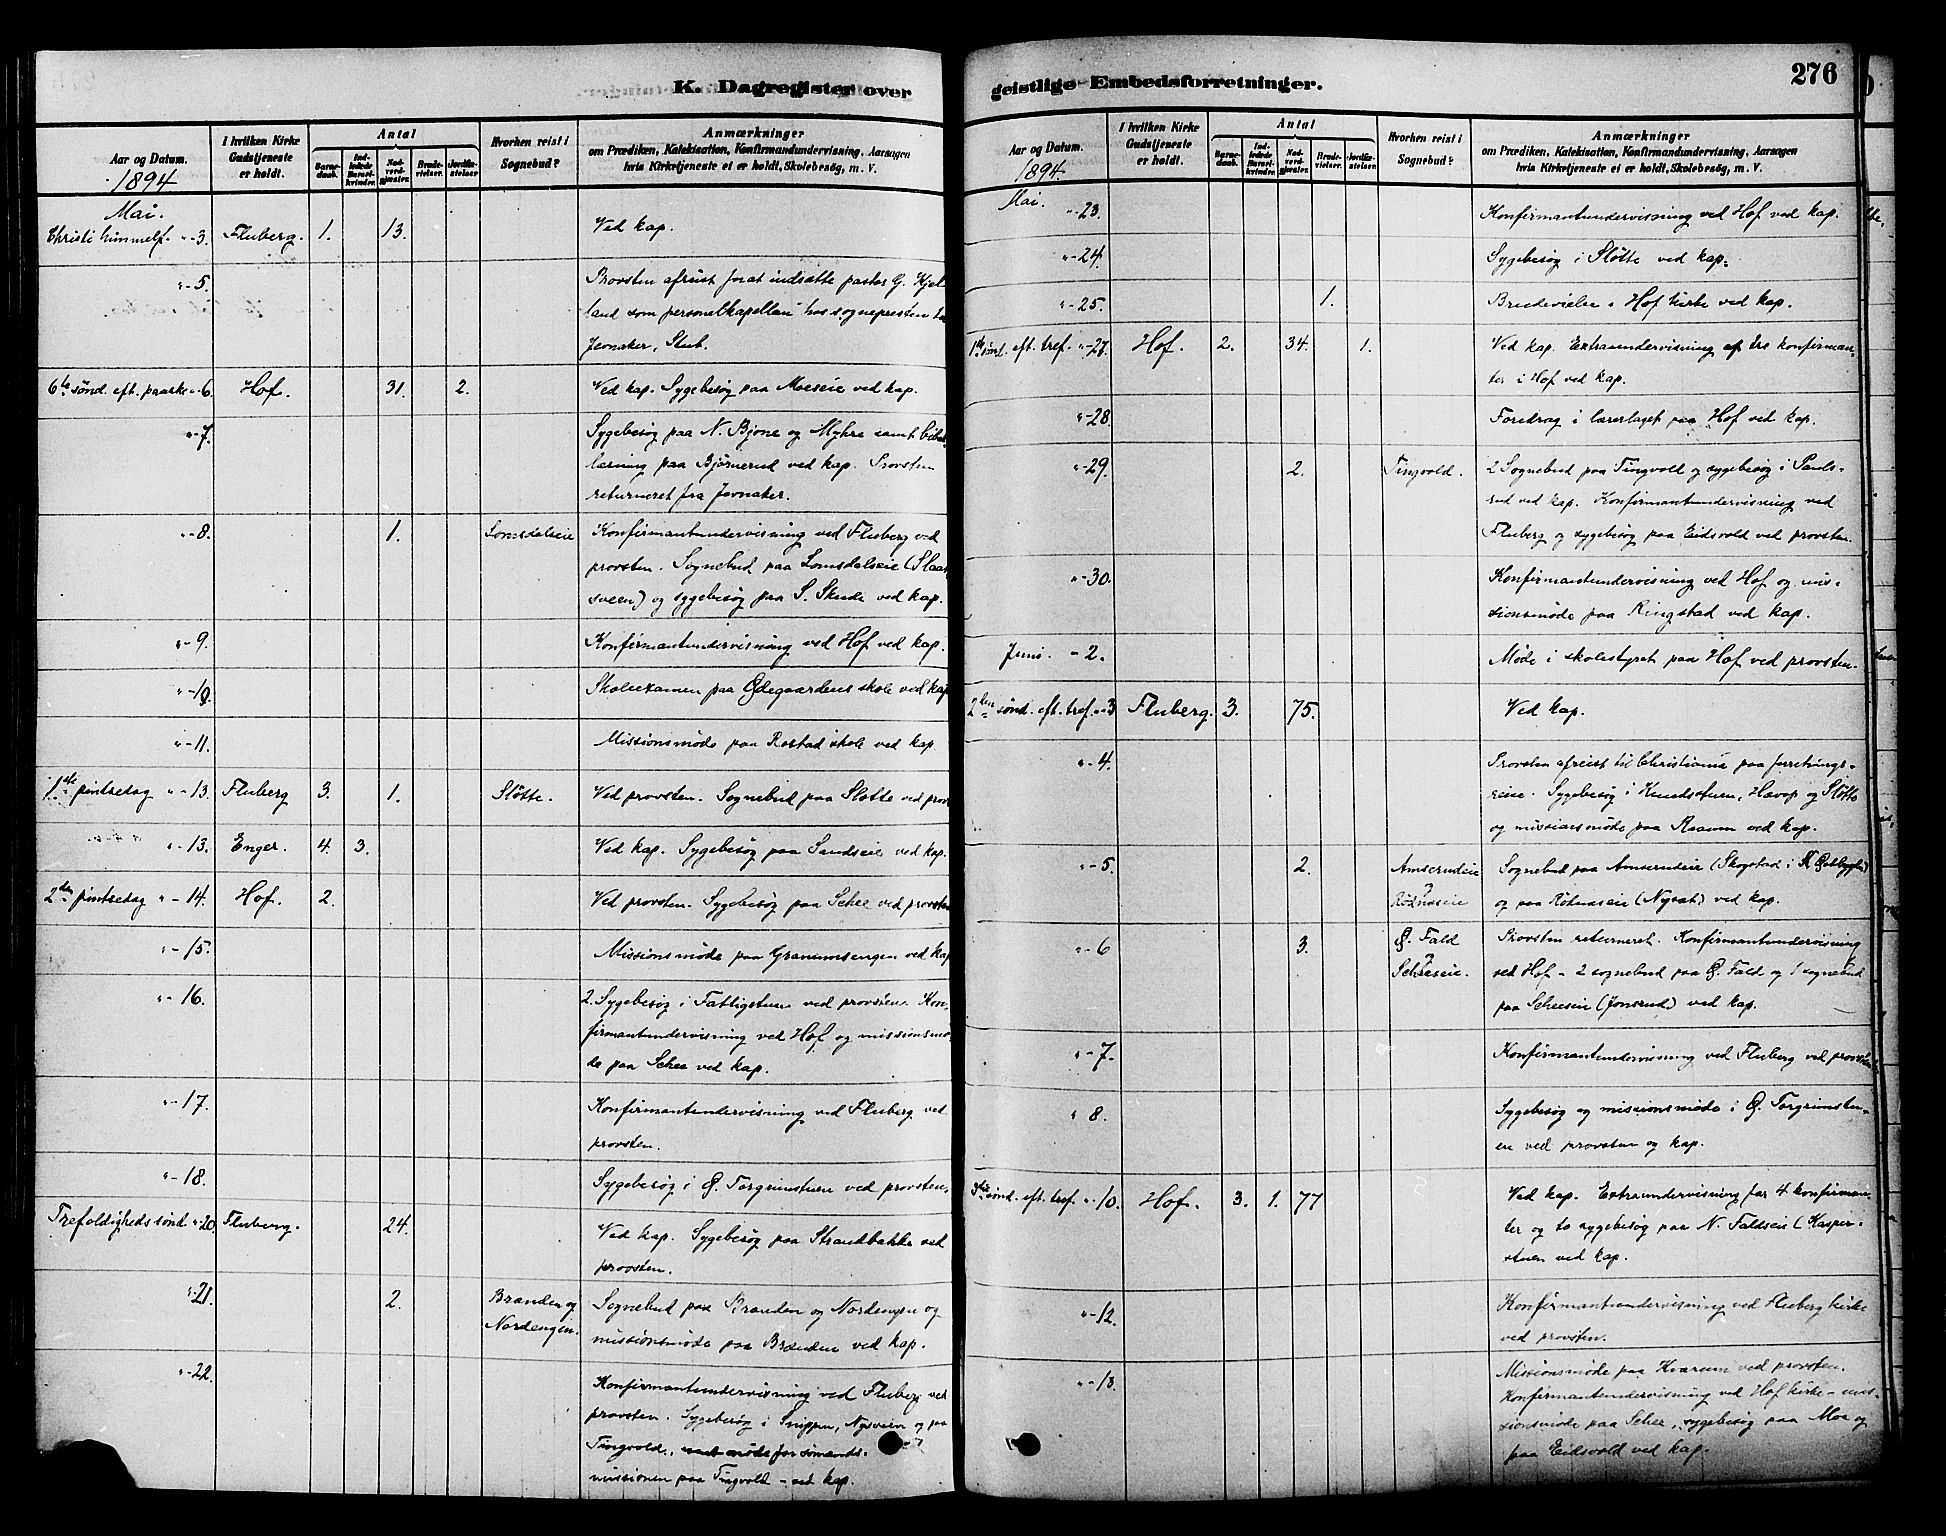 K. Dagregister over
Aar og Datum.
1894
I hvilken Kirke Gudstjeneste er holdt.
Antal
Barnedaab.
Indledede Barselkvinder.
Nadverdgjæster.
Brudevielser.
Jordfæstelser
Hvorhen reist i Sognebud?
Anmærkninger
om Prædiken, Katekisation, Konfirmandundervisning, Aarsagen
hvis Kirketjeneste ei er holdt, Skolebesøg, m. V.
Mai.
Christi himmelf. "-3. Fluberg. 1. 13. Ved kap.
"-5. Provsten afreist forat indsætte pastor G. Kjel-
land som personelkapellan hos sognepresten til
Jevnaker, Stub.
6te sønd. eft. paaske "-6. Hof. 31. 2. Ved kap. Sygebesøg paa Moeseie ved kap.
"-7. Sygebesøg paa N. Bjone og Myhre samt bibel-
læsning paa Bjørnerud ved kap. Provsten
returneret fra Jevnaker.
"-8. 1. Lomsdalseie Konfirmantundervisning ved Fluberg ved
provsten. Sognebud paa Lomsdalseie (Slaat-
sveen) og sygebesøg paa S. Skude ved kap.
"-9. Konfirmantundervisning ved Hof ved kap.
"-10. Skoleexamen paa Ødegaardens skole ved kap
"-11. Missionsmøde paa Rostad skole ved kap
1ste pintsedag "-13. Fluberg 3. 1. Sløtte. Ved provsten. Sognebud paa Sløtte ved prov
"-13. Enger. 4. 3. Ved kap. Sygebesøg paa Sandseie ved kap.
2den pintsedag "-14. Hof. 2. Ved provsten. Sygebesøg paa Schee ved provsten
"-15. Missionsmøde paa Granumsengen ved kap
"-16. 2. Sygebesøg i Fattigstuen ved provsten. Kon-
firmantundervisning ved Hof og missionsmø-
de paa Schee ved kap.
"-17. Konfirmantundervisning ved Fluberg ved
provsten.
"-18. Sygebesøg i Ø. Torgrimstuen ved provsten.
Trefoldighedssønd "-20. Fluberg. 24. Ved kap. Sygebesøg paa Strandbakke ved
provsten.
"-21. 2. Branden og Nordengen. Sognebud paa Branden og Nordengen og
missionsmøde paa Branden ved kap.
"-22. Konfirmantundervisning ved Fluberg ved
provsten. Sygebesøg i Snippen, Nysveen og paa
Tingvold, møde for sømands-
missionen paa Tingvold - ved kap.
geistlige Embedsforretninger.
276
Aar og Datum.
1894.
I hvilken Kirke Gudstjeneste er holdt.
Antal
Barnedaab.
Indledede Barselkvinder.
Nadverdgjæster.
Brudevielser.
Jordfæstelser
Hvorhen reist i Sognebud?
Anmærkninger
om Prædiken, Katekisation, Konfirmandundervisning, Aarsagen
hvis Kirketjeneste ei er holdt, Skolebesøg, m. V.
Mai. "-23. Konfirmantundervisning ved Hof ved kap.
"-24. Sygebesøg i Sløtte ved kap.
"-25. 1. Brudevielse i Hof kirke ved kap.
1ste sønd. eft. tref. "-27. Hof. 2. 34. 1. Ved kap. Extraundervisning af tre konfirman-
ter i Hof ved kap.
"-28. Foredrag i lærerlaget paa Hof ved kap.
"-29. 2. Tingvold. 2 Sognebud paa Tingvold og sygebesøg i Pauls-
rud ved kap. Konfirmantundervisning ved
Fluberg og sygebesøg paa Eidsvold ved provsten.
"-30. Konfirmantundervisning ved Hof og mis-
sionsmøde paa Ringstad ved kap.
Juni. "-2. Møde i skolestyret paa Hof ved provsten.
2den sønd. eft. tref. "-3 Fluberg. 3. 75. Ved kap.
"-4. Provsten afreist til Christiania paa forretnings-
reise. Sygebesøg i Knudsstuen, Hævop og Sløtte
og missionsmøde paa Raaum ved kap.
"-5. 2. Amserudeie Rødnæseie Sognebud paa Amserudeie (Skogstad i Østbygden)
og paa Rødnæseie (Nysæt) ved kap.
"-6 3. Ø. Fald Scheeseie. Provsten returneret. Konfirmantundervisning
ved Hof - 2 sognebud paa Ø. Fald og 1 sognebud
paa Scheeseie (Jonsrud) ved kap.
"-7. Konfirmantundervisning ved Fluberg ved provsten
" 8. Sygebesøg og missionsmøde i Ø. Torgrimstu-
en ved provsten og kap.
3die sønd. eft. tref. "-10. Hof. 3. 1. 77 Ved kap. Extraundervisning for 4 konfirman-
ter og to sygebesøg paa N. Faldseie (Kasper-
stuen ved kap.
"-12. Konfirmantundervisning ved Fluberg kirke
ved provsten.
"-13. Missionsmøde paa Kvarum ved provsten.
Konfirmantundervisning ved Hof kirke - mis-
sionsmøde paa Schee, sygebesøg paa Moe og
paa Eidsvold ved kap.